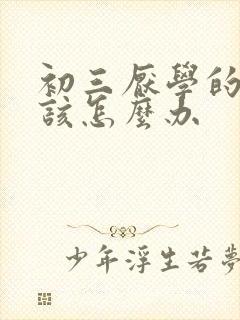 初三厭學的
該怎麼办
少年浮生若夢